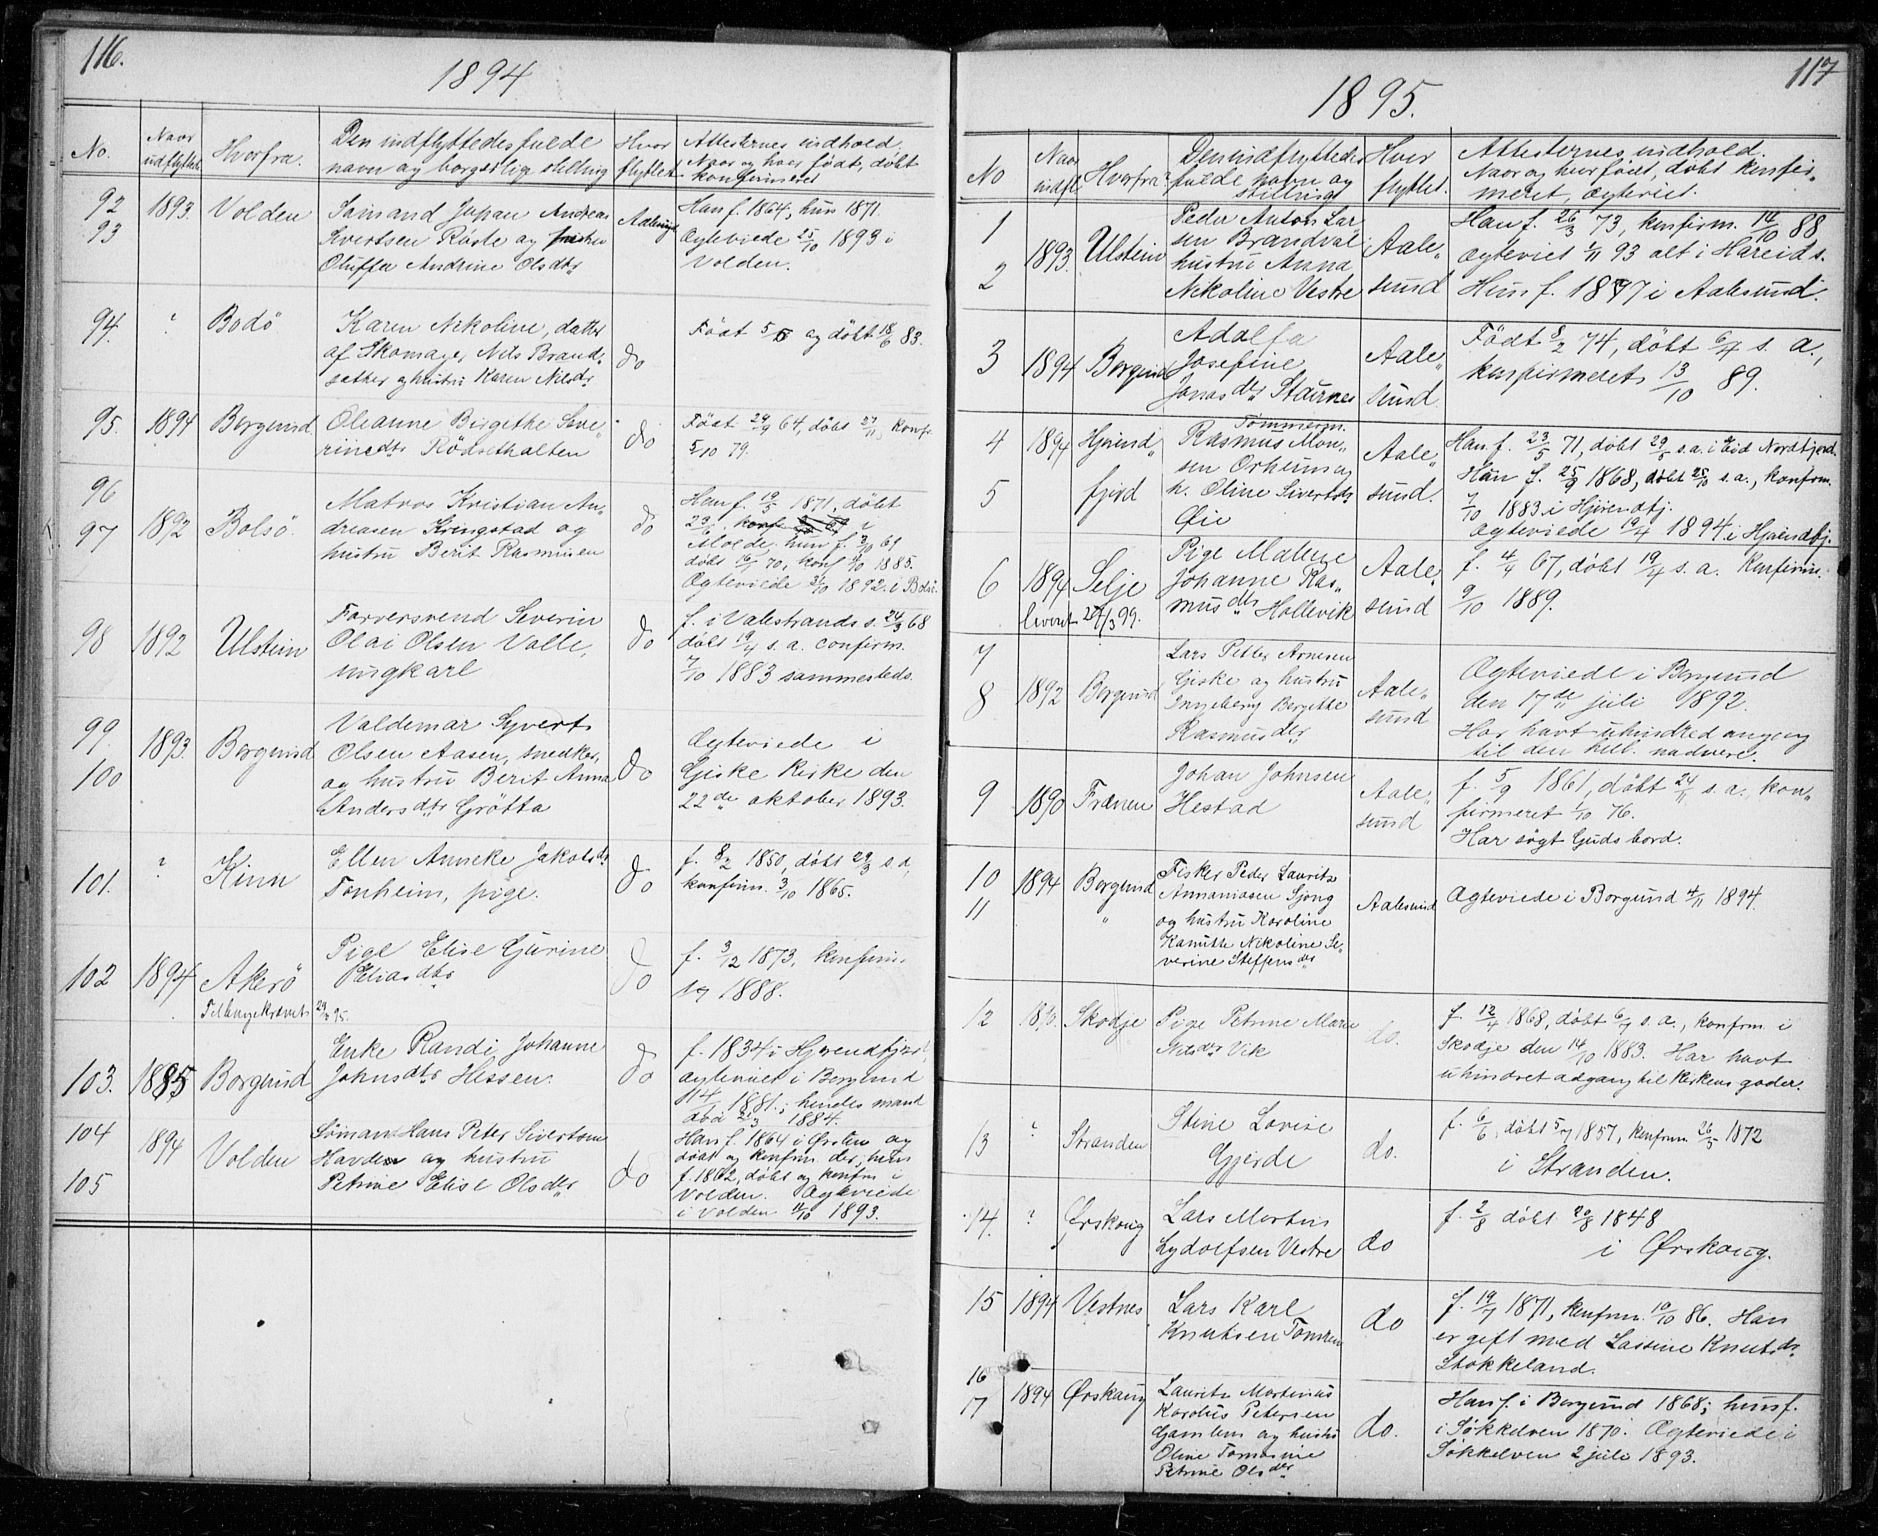 116.
1894
No.
Naar indflyttet
Hvorfra.
Den indflyttedes fulde
navn og borgerlig stilling
Hvor flyttet
Attesternes indhold.
Naar og hvor født, døbt
konfirmeret
92 1893. Volden Sømand Johan Andreas Aalesund Han f. 1864, hun 1871.
93 Sivertsen Røste og hustru Ægteviede 25/10 1893 i
Oluffa Andrine Olsdtr Volden.
94. ? Bodö Karen Nikoline, datter Født 5/5 og døbt 18/6 83.
af Skomager Nils Brand- do
sether og hustru Karen Nilsdtr
95. 1894 Borgund Oleanne Birgithe Seve- do Født 29/9 64, døbt 27/11, konf.
rinedtr Rödsethalten 5/10 79.
96 Matros Kristian An- Han f. 19/5 1871, døbt
97 1892 Bolsö dreasen Kringstad og do 23/6 konf i
hustru Berit Rasmusen Molde. hun f. 3/10 69
døbt 16/1 70, konf 3/10 1885.
Ægteviede 26/10 1892 i Bolsö.
98 1892 Ulstein Farversvend Severin do f. i Valestrands s. 24/3 68
Olai Olsen Valle, døbt 19/4 s. a. confirm.
ungkarl 7/10 1883 sammesteds.
99. 1893. Borgund Valdemar Syvert Ægteviede i
100 Olsen Aasen, snedker, do Giske Kirke den
og hustru Berit Anna 22de oktober 1893.
Andersdtr Grötta
101. ? Kinn Ellen Anneke Jakobsdtr do f. 8/2 1850, døbt 29/3 s. a,
Tonheim, pige. konfirm. 3/10 1865.
102 1894 Akerö Pige Elise Gurine do f. 3/12 1873, konfirm.
Eliasdtr 1888.
Tilbagekrævet 23/2 95.
103. 1885 Borgund Enke Randi Johanne do f. 1834 i Hjørendfjord,
Johnsdtr Hessen. ægteviet i Borgund
1881; hendes mand
død 1884.
104 1894 Volden Sömand Hans Peter Sivertsen Han f. 1864 i Ørsten og
Havden og hustru do døbt og konfirm der, hun
105 Petrine Elise Olsdtr f. 1862, døbt og konfirm i
Volden. Ægteviede
i Volden 12/10 1893.
117
1895.
No
Naar indfl.
Hvorfra?
Den indflyttedes
fulde navn og
stilling
Hvor flyttet.
Attesternes indhold.
Naar og hvor født, døbt konfir-
meret, ægteviet.
1 Peder Anton Lar- Han f. 26/3 73, konfirm. 14/10 88
1893. Ulstein sen Brandval Aale- ægteviet 1/11 93 alt i Hareid s.
2 hustru Anna sund Hun f. 1877 i Aalesund.
Nikoline Vestre
3 1894 Borgund Adolfa Aale- Født 8/2 74, døbt 6/4 s. a.,
Josefine sund konfirmeret 13/10 89.
Jonasdtr Staurnes
4 1894 Hjørend- Tømmerm. Aale- Han f. 23/5 71, døbt 29/5 s.a. i Eid Nordfjord.
Rasmus Mon- Hun f. 25/9 1868, døbt 25/10 s. a., konfirm.
5 fjord sen Orheim og sund. 7/10 1883 i Hjørendfj.
h. Oline Sivertsdtr Ægteviede 19/4 1894 i Hjørendfj.
Øie
6 1894 Selje Pige Malene Aale- f. 4/4 67, døbt 19/4 s. a. konfirm.
Johanne Ras- sund 9/10 1889.
leveret 27/3 99. musdtr Hallevik
7 Lars Petter Arnesen Ægteviede i Borgund
8 1892 Borgund Giske og hustru Aale- den 17de juli 1892.
Ingeborg Bergitte sund Har havt uhindred adgang
Rasmusdtr til den hell. nadvere.
9 1890 Frænen Johan Johnsen Aale- f. 5/9 1861, døbt 24/11 s. a. kon-
Hestad sund firmeret 1/10 76.
Har søgt Guds bord.
10 1894 Borgund Fisker Peder Lauritz
11 " Annaniasen Sjong Aalesund Ægteviede i Borgund 4/11 1894
og hustru Karoline
Kanutte Nikoline Se-
verine Steffensdtr
12 Skodje Pige Petrine Marie do. f. 12/4 1868, døbt 6/7 s. a., konfrm i
Nilsdtr Vik Skodje den 14/10 1883. Har havt
uhindret adgang til kirkens goder.
13 ? Stranden Stine Lovise do. f. 6/6, døbt 5/7 1857, konfirm 26/5 1872
Gjerde i Stranden.
14. ? Ørskoug Lars Martin do f. 2/8 døbt 20/8 1848
Lydolfsen Vestre i Ørskoug.
15 1894 Vestnes Lars Karl do f. 19/7 1871, konfirm. 10/10 86. Han
Knutsen Tomren er gift med Lassine Knutsdtr
Stokkeland.
16 Lauritz Martinus Han f. i Borgund 1868; hun f.
17 1894 Ørskoug Karolus Petersen do. i Søkkelven 1870. Ægteviede i
Gamlem og hustru Søkkelven 2 juli 1893.
Oline Tomasine
Petrine Olsdtr